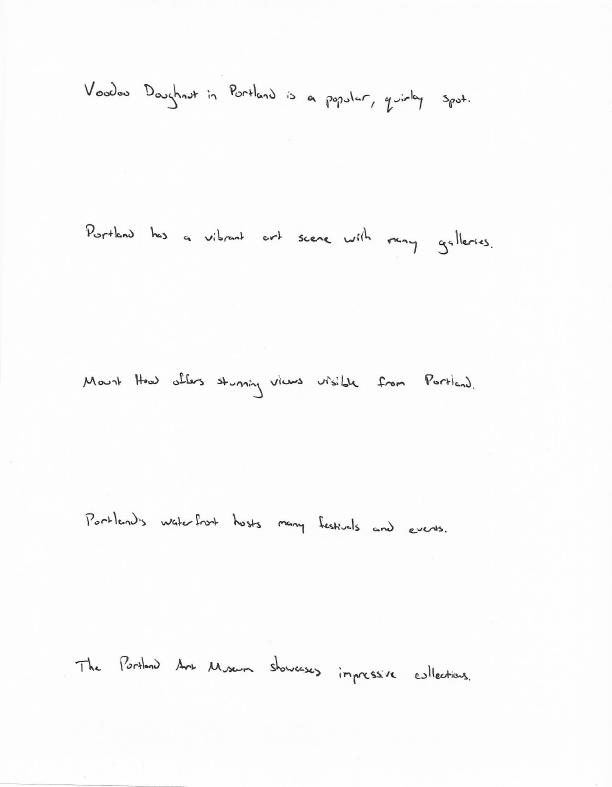 Voodoo Doughnut in Portland is a popular, quirky spot.
Portland has a vibrant art scene with many galleries.
Mount Hood offers stunning views visible from Portland.
Portland's waterfront hosts many festivals and events.
The Portland Art Museum showcases impressive collections.